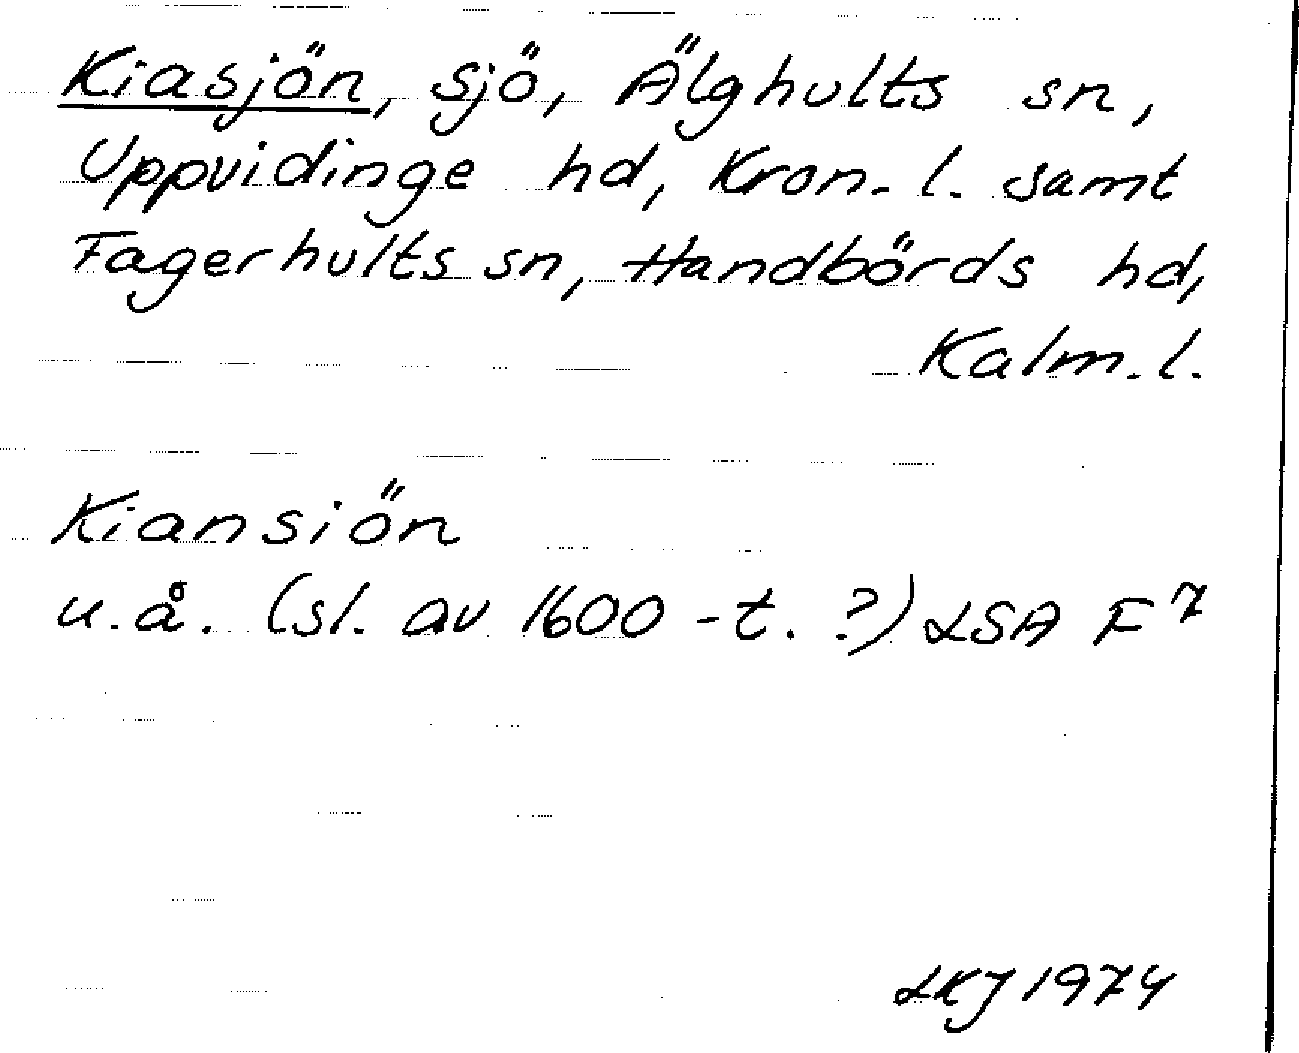 Kiasjön, sjö, Älghults sn,
Uppvidinge hd, Kron. l. samt
Fagerhults sn, Handbörds hd,
Kalm. l.
Kiansiön
u.å. (sl. av 1600-t. ?) LSA F7
LKJ 1974